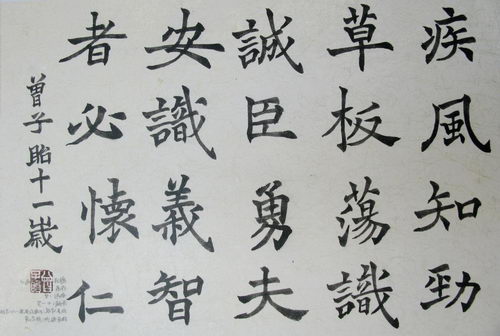 疾風知勁
草板蕩識
誠臣勇夫
安識義智
者必懷仁
曾子昭十一歲